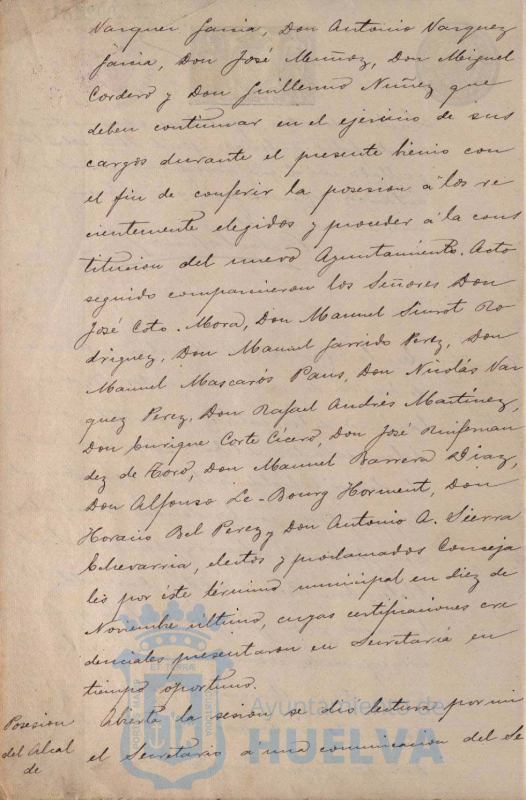 Vazquez Garcia, Don Antonio Vazquez
Garcia, Don José Muñoz, Don Miguel
Cordero y Don Guillermo Nuñez que
deben continuar en el ejercicio de sus
cargos durante el presente bienio con
el fin de conferir la posesion á los re
cientemente elegidos y proceder á la cons
titucion del nuevo Ayuntamiento. Acto
seguido comparecieron los Señores Don
José Coto Mora, Don Manuel Siurot Ro
driguez, Don Manuel Garrido Perez, Don
Manuel Mascarós Pans, Don Nicolás Vaz
quez Perez, Don Rafael Andrés Martínez,
Don Enrique Corte Cícero, Don José Ruifernan
dez de Toro, Don Manuel Barrera Diaz,
Don Alfonso Le-Bourg Horment, Don
Horacio Bel Perez y Don Antonio A. Sierra
Echevarria, electos y proclamados Conceja
les por este término municipal en diez de
Noviembre ultimo, cuyas certificaciones cre
denciales presentaron en Secretaría en
tiempo oportuno.
Posesion
del Alcal
de
Abierta la sesión se dió lectura por mi
el Secretario a una comunicacion del Se
Ayuntamiento de
HUELVA